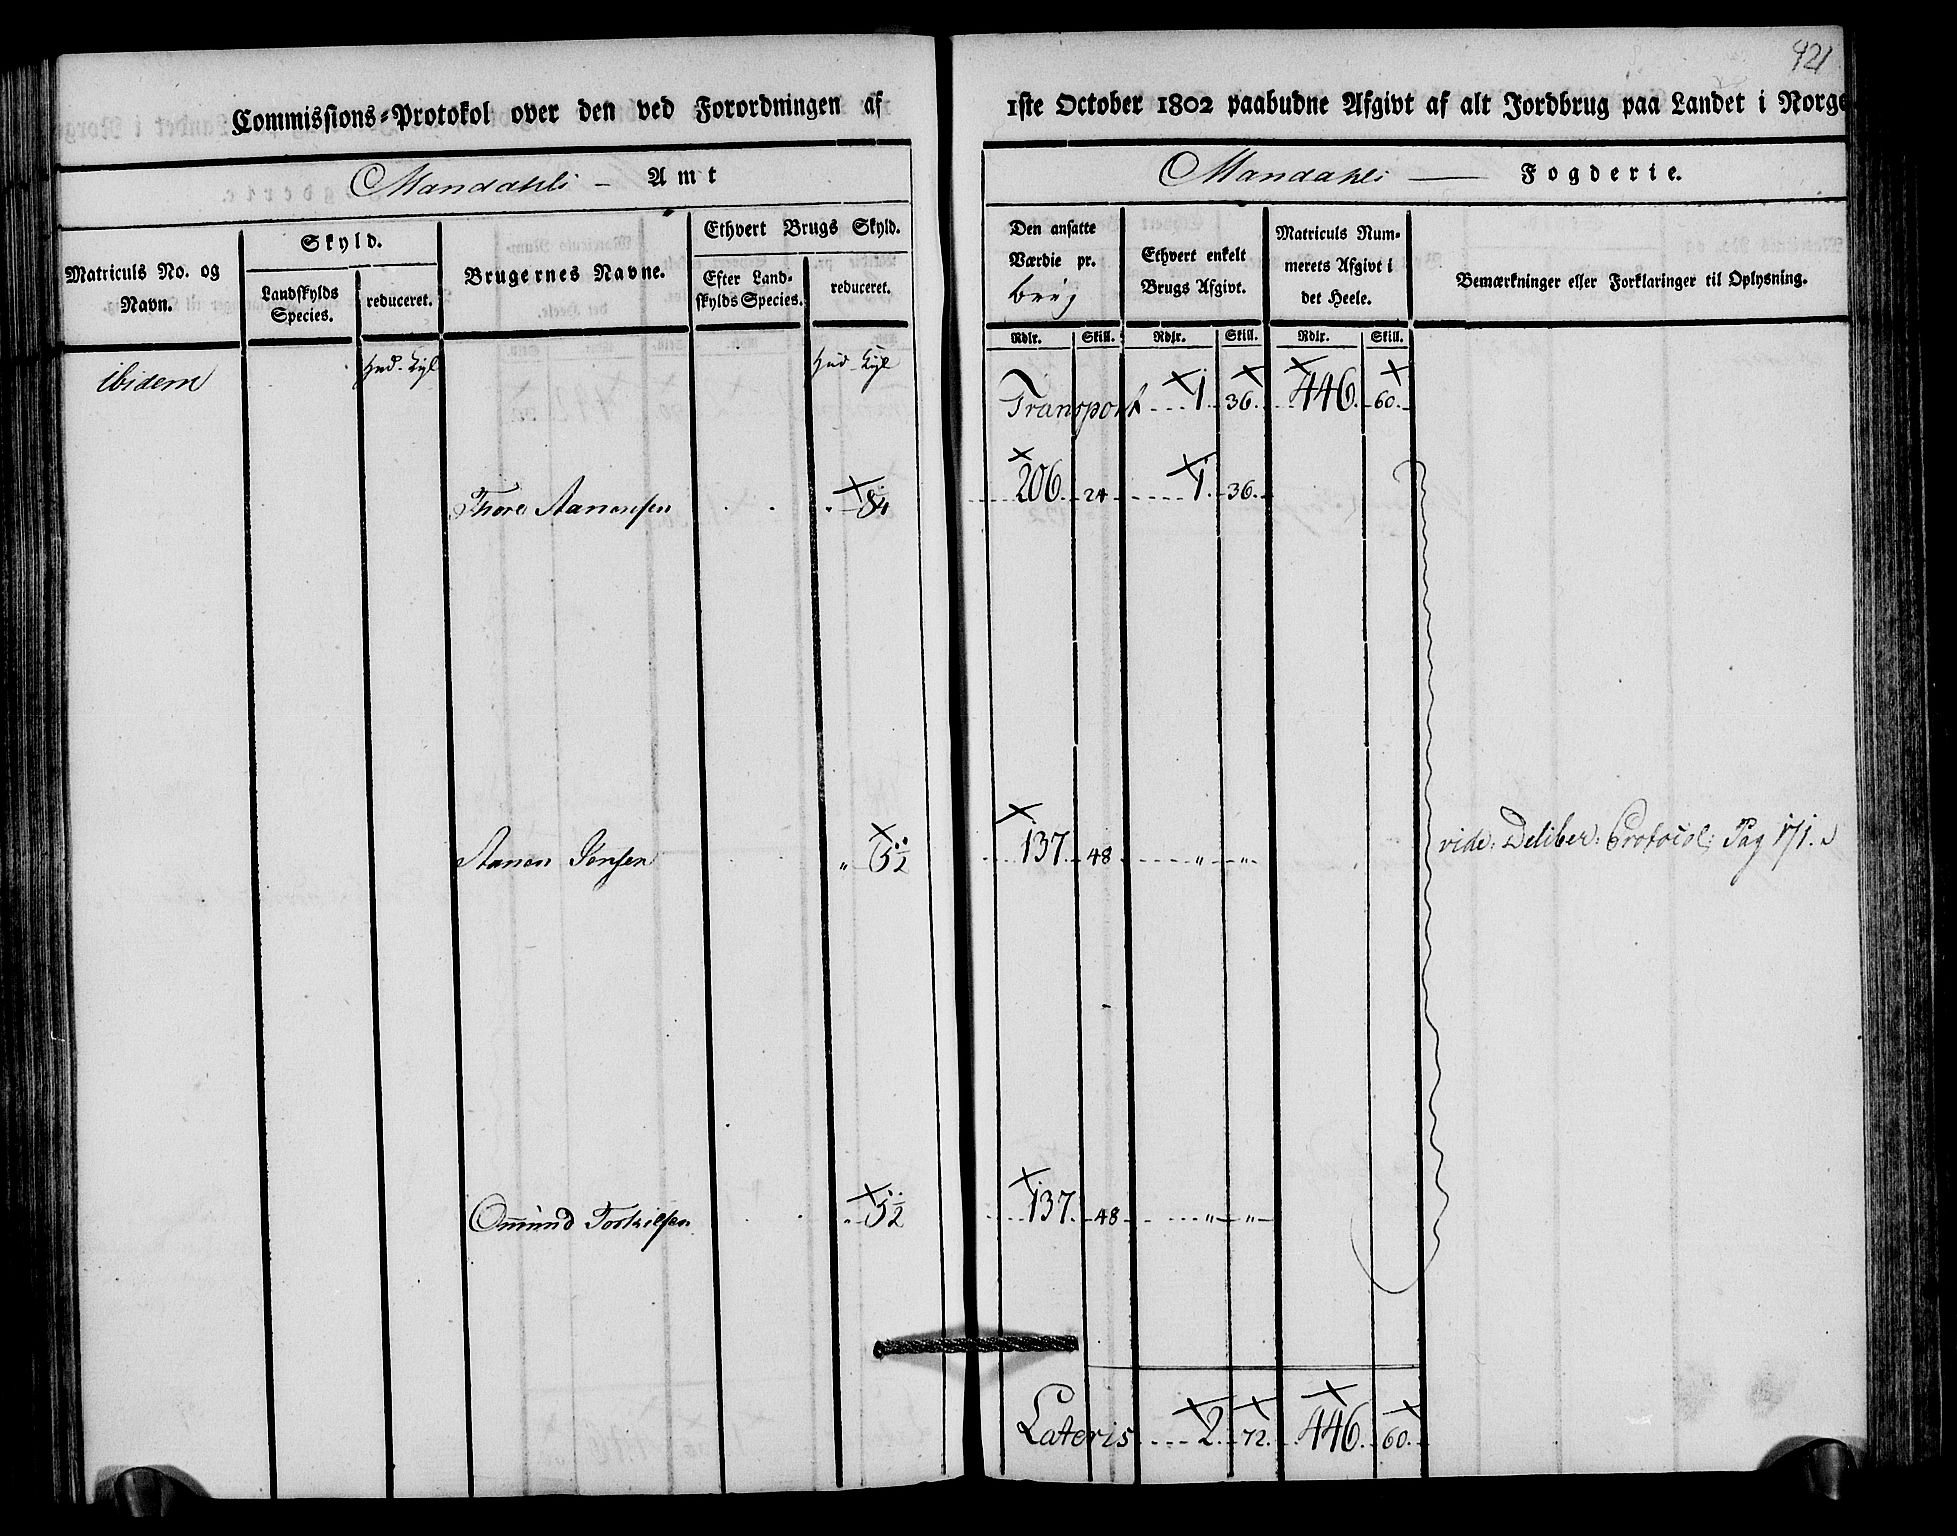 921
Commissions-Protokol over den ved Forordningen af 1ste October 1802 paabudne Afgivt af alt Jordbrug paa Landet i Norge
Mandahls - Amt
Mandahls - Fogderie.
Matriculs No. og Navn.
Skyld.
Landskylds Species.
reduceret.
Brugernes Navne.
Ethvert Brugs Skyld.
Efter Landskylds Species.
reduceret.
Den ansatte Værdie pr.
Ethvert enkelt Brugs Afgivt.
Matriculs Nummerets Afgivt i det Heele.
Bemærkninger eller Forklaringer til Oplysning.
Rdlr. Skill. Rdlr. Skill. Rdlr. Skill.
ibidem
Transport 1. 36. 446. 60.
Thore Aanensen 206. 24 1. 36.
Aanen 137. 48 " " vide: Deliber: Protocol: Pag 171.
Omund 137. 48 " "
Lateris 2. 72. 446. 60.